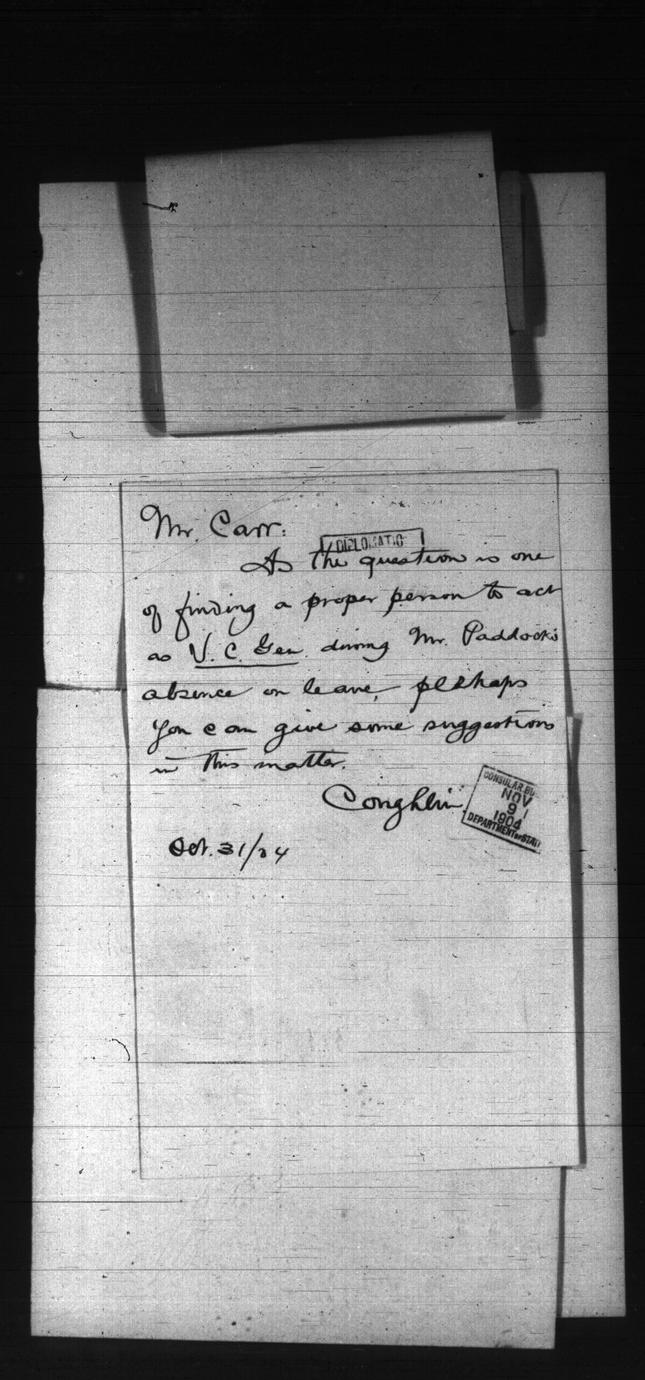 Mr. Carr:
DIPLOMATIC
As the question is one
of finding a proper person to act
as V. C. Gen. during Mr. Paddock's
absence on leave, perhaps
you can give some suggestions
in this matter.
Coughlin
CONSULAR BU
NOV
9
1904
DEPARTMENT of STATE
Oct. 31/04